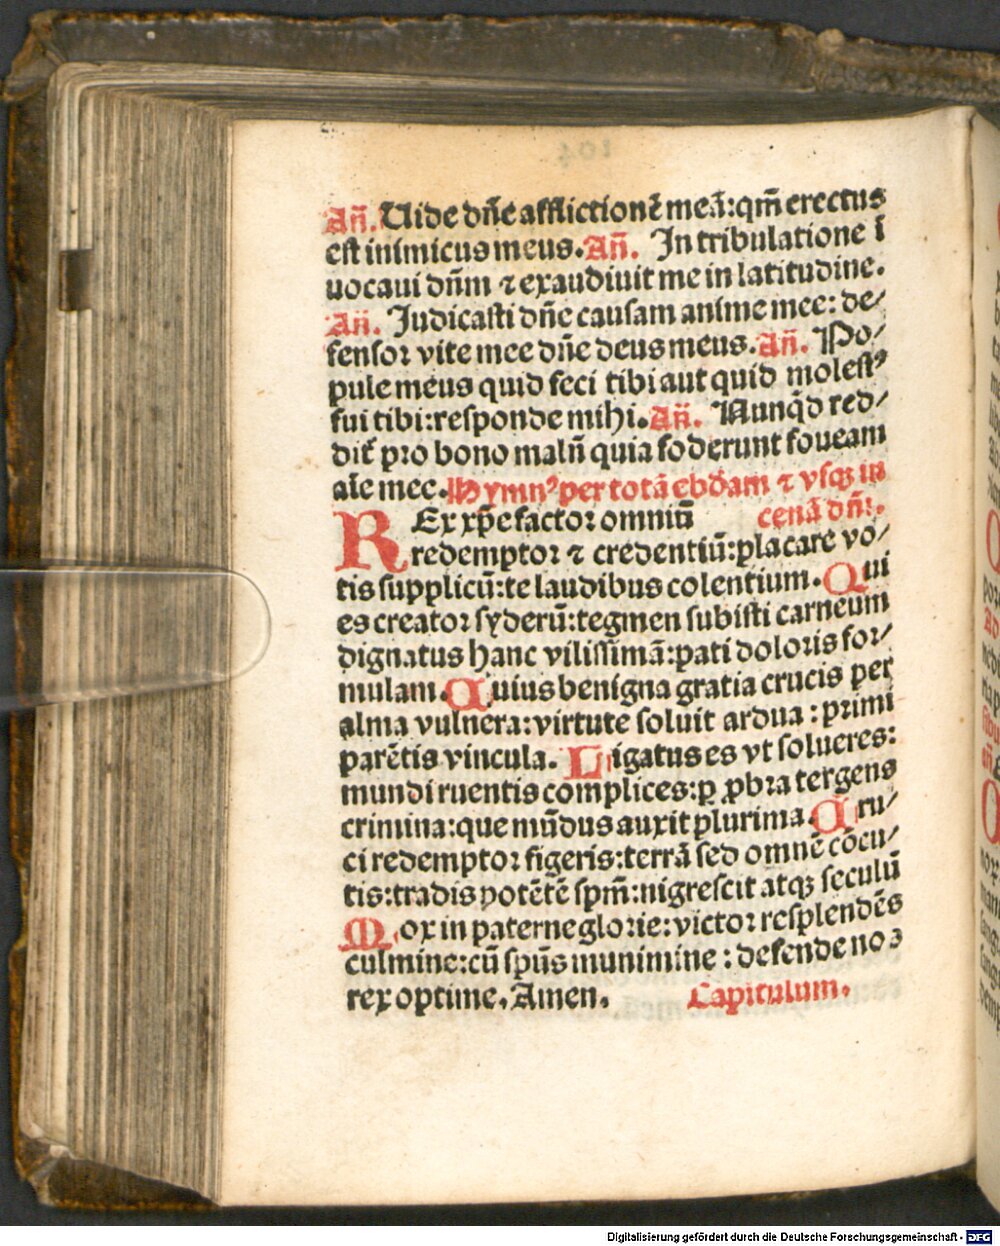 Añ. Uide dñe afflictionē meā: qm̄ erectus
est inimicus meus. Añ. In tribulatione ī
uocaui dñm ⁊ exaudiuit me in latitudine.
Añ. Judicasti dñe causam anime mee: de/
fensor vite mee dñe deus meus. Añ. Po/
pule meus quid feci tibi aut quid molestꝰ
fui tibi: responde mihi. Añ. Nunqd̄ red/
dit̄ pro bono malū quia foderunt foueam
aīe mee. Hymnꝰ per totā ebdām ⁊ vsqꝫ in
REx xp̄e factor omniū cenā dñi.
redemptor ⁊ credentiū: placare vo/
tis supplicū: te laudibus colentium. Qui
es creator syderū: tegmen subisti carneum
dignatus hanc vilissimā: pati doloris for/
mulam. Cuius benigna gratia crucis per
alma vulnera: virtute soluit ardua: primi
parētis vincula. Ligatus es vt solueres:
mundi ruentis complices: ꝑ ꝓbra tergens
crimina: que mūdus auxit plurima. Cru/
ci redemptor figeris: terrā sed omnē cōcu/
tis: tradis potētē spm̄: nigrescit atqꝫ seculū
Mox in paterne glorie: victor resplendēs
culmine: cū spūs munimine: defende nos
rex optime. Amen. Capitulum.
Digitalisierung gefördert durch die Deutsche Forschungsgemeinschaft - DFG